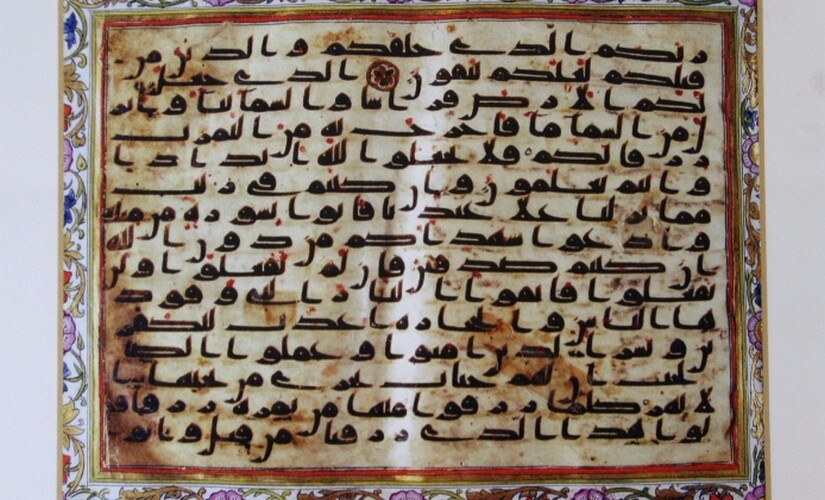 ربكم الذي خلقكم والذين من
قبلكم لعلكم تتقون الذي جعل
لكم الارض فرشا والسما بنا وانز
ل من السما ما فاخرج به من الثمرت
رزقا لكم فلا تجعلوا لله اندادا
وانتم تعلمون وان كنتم في ريب
مما نزلنا على عبدنا فاتوا بسورة من مثله
وادعوا شهداكم من دون الله
ان كنتم صدقين فان لم تفعلوا ولن
تفعلوا فاتقوا النار التي وقود
ها الناس والحجارة اعدت للكفر
ين وبشر الذين امنوا وعملوا الصا
لحت ان لهم جنات تجري من تحتها ا
لانهر كلما رزقوا منها من ثمرة رزقا قا
لوا هذا الذي رزقنا من قبل واتوا